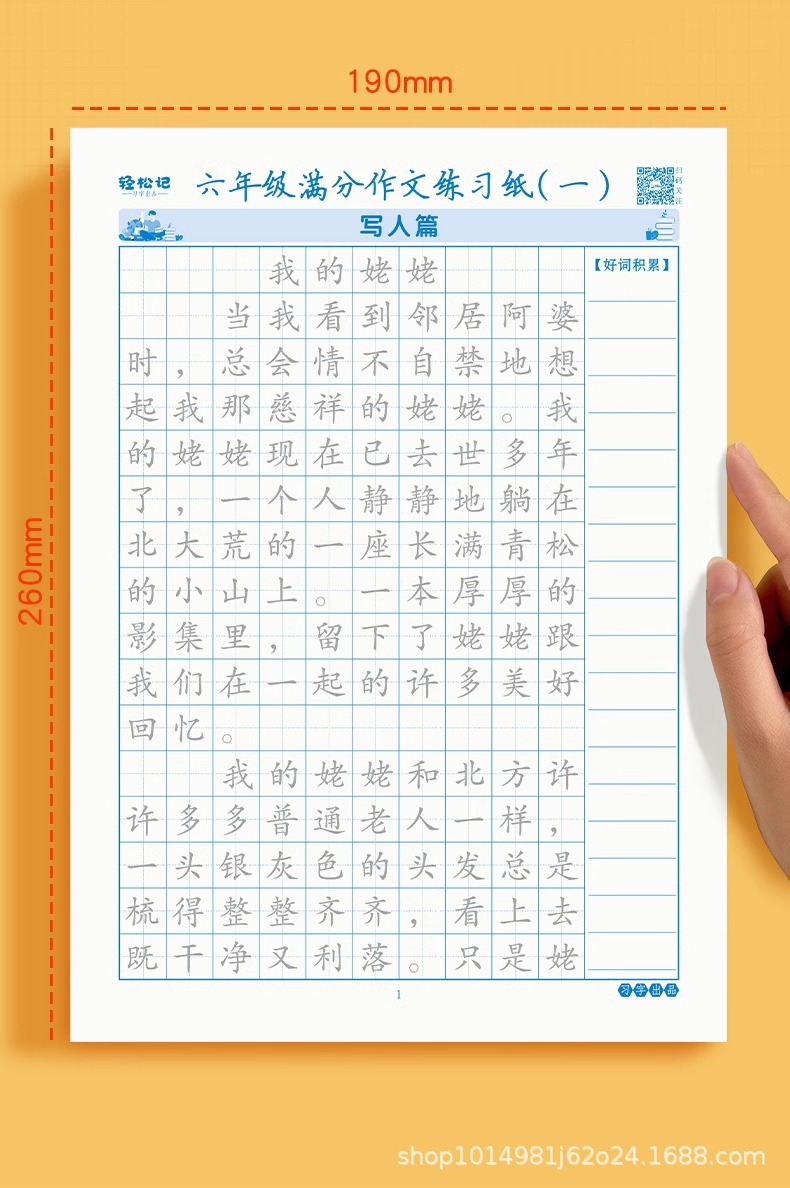 190mm
260mm
轻松记
习字出品
六年级满分作文练习纸(一)
扫码关注
写人篇
【好词积累】
我的姥姥
当我看到邻居阿婆
时，总会情不自禁地想
起我那慈祥的姥姥。我
的姥姥现在已去世多年
了，一个人静静地躺在
北大荒的一座长满青松
的小山上。一本厚厚的
影集里，留下了姥姥跟
我们在一起的许多美好
回忆。
我的姥姥和北方许
许多多普通老人一样，
一头银灰色的头发总是
梳得整整齐齐，看上去
既干净又利落。只是姥
1
习字出品
shop1014981j62o24.1688.com